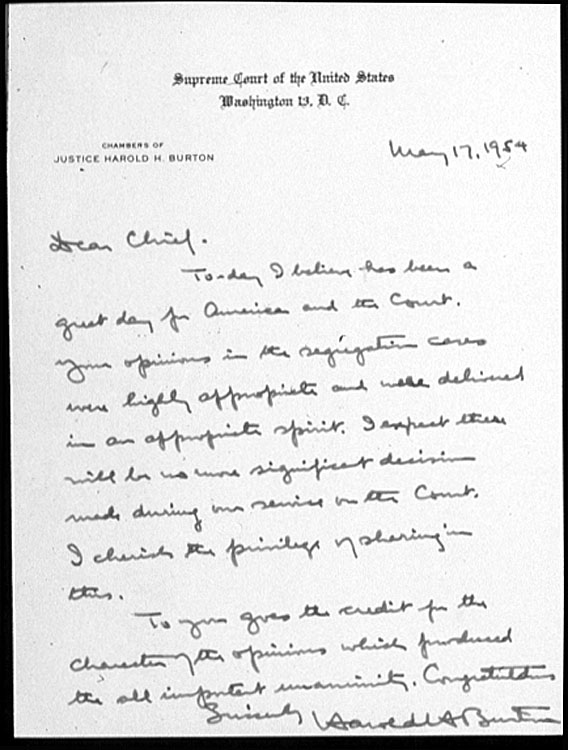 Supreme Court of the United States
Washington 13, D. C.
CHAMBERS OF
JUSTICE HAROLD H. BURTON
May 17, 1954
Dear Chief.
To-day I believe has been a
great day for America and the Court.
Your opinions in the segregation cases
were highly appropriate and were delivered
in an appropriate spirit. I expect there
will be no more significant decision
made during our service on the Court.
I cherish the privilege of sharing in
this.
To you goes the credit for the
character of the opinions which produced
the all important unanimity. Congratulations
Sincerely Harold H. Burton